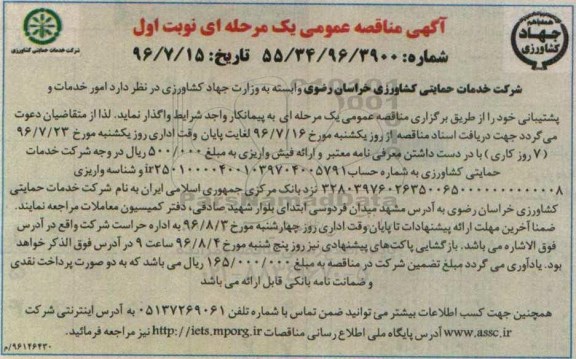 همه با هم
جهاد
کشاورزی
شرکت خدمات حمایتی کشاورزی
آگهی مناقصه عمومی یک مرحله ای نوبت اول
شماره: ۵۵/۳۴/۹۶/۳۹۰۰ تاریخ: ۹۶/۷/۱۵
شرکت خدمات حمایتی کشاورزی خراسان رضوی وابسته به وزارت جهاد کشاورزی در نظر دارد امور خدمات و
پشتیبانی خود را از طریق برگزاری مناقصه عمومی یک مرحله ای به پیمانکار واجد شرایط واگذار نماید. لذا از متقاضیان دعوت
می گردد جهت دریافت اسناد مناقصه از روز یکشنبه مورخ ۹۶/۷/۱۶ لغایت پایان وقت اداری روز یکشنبه مورخ ۹۶/۷/۲۳
(۷ روز کاری) با در دست داشتن معرفی نامه معتبر و ارائه فیش واریزی به مبلغ ۵۰۰/۰۰۰ ریال در وجه شرکت خدمات
حمایتی کشاورزی به شماره حساب ir۲۵۰۱۰۰۰۰۴۰۰۱۰۳۹۷۰۴۰۰۵۷۹۱ و شناسه واریزی
۳۲۸۰۳۹۷۶۰۲۶۳۵۰۰۶۵۰۰۰۰۰۰۰۰۰۰۰۰۸ نزد بانک مرکزی جمهوری اسلامی ایران به نام شرکت خدمات حمایتی
کشاورزی خراسان رضوی به آدرس مشهد میدان فردوسی ابتدای بلوار شهید صادقی، دفتر کمیسیون معاملات مراجعه نمایند.
ضمنا آخرین مهلت ارائه پیشنهادات تا پایان وقت اداری روز چهارشنبه مورخ ۹۶/۸/۳ به اداره حراست شرکت واقع در آدرس
فوق الاشاره می باشد. بازگشایی پاکت‌های پیشنهادی نیز روز پنج شنبه مورخ ۹۶/۸/۴ ساعت ۹ در آدرس فوق الذکر خواهد
بود. یادآوری می گردد مبلغ تضمین شرکت در مناقصه به مبلغ ۱۶۵/۰۰۰/۰۰۰ ریال می باشد که به دو صورت پرداخت نقدی
و ضمانت نامه بانکی قابل ارائه می باشد
همچنین جهت کسب اطلاعات بیشتر می توانید ضمن تماس با شماره تلفن ۰۵۱۳۷۲۶۹۰۶۱ به آدرس اینترنتی شرکت
www.assc.ir آدرس پایگاه ملی اطلاع رسانی مناقصات http://iets.mporg.ir نیز مراجعه فرمائید.
۹۶۱۴۶۴۳۰/م